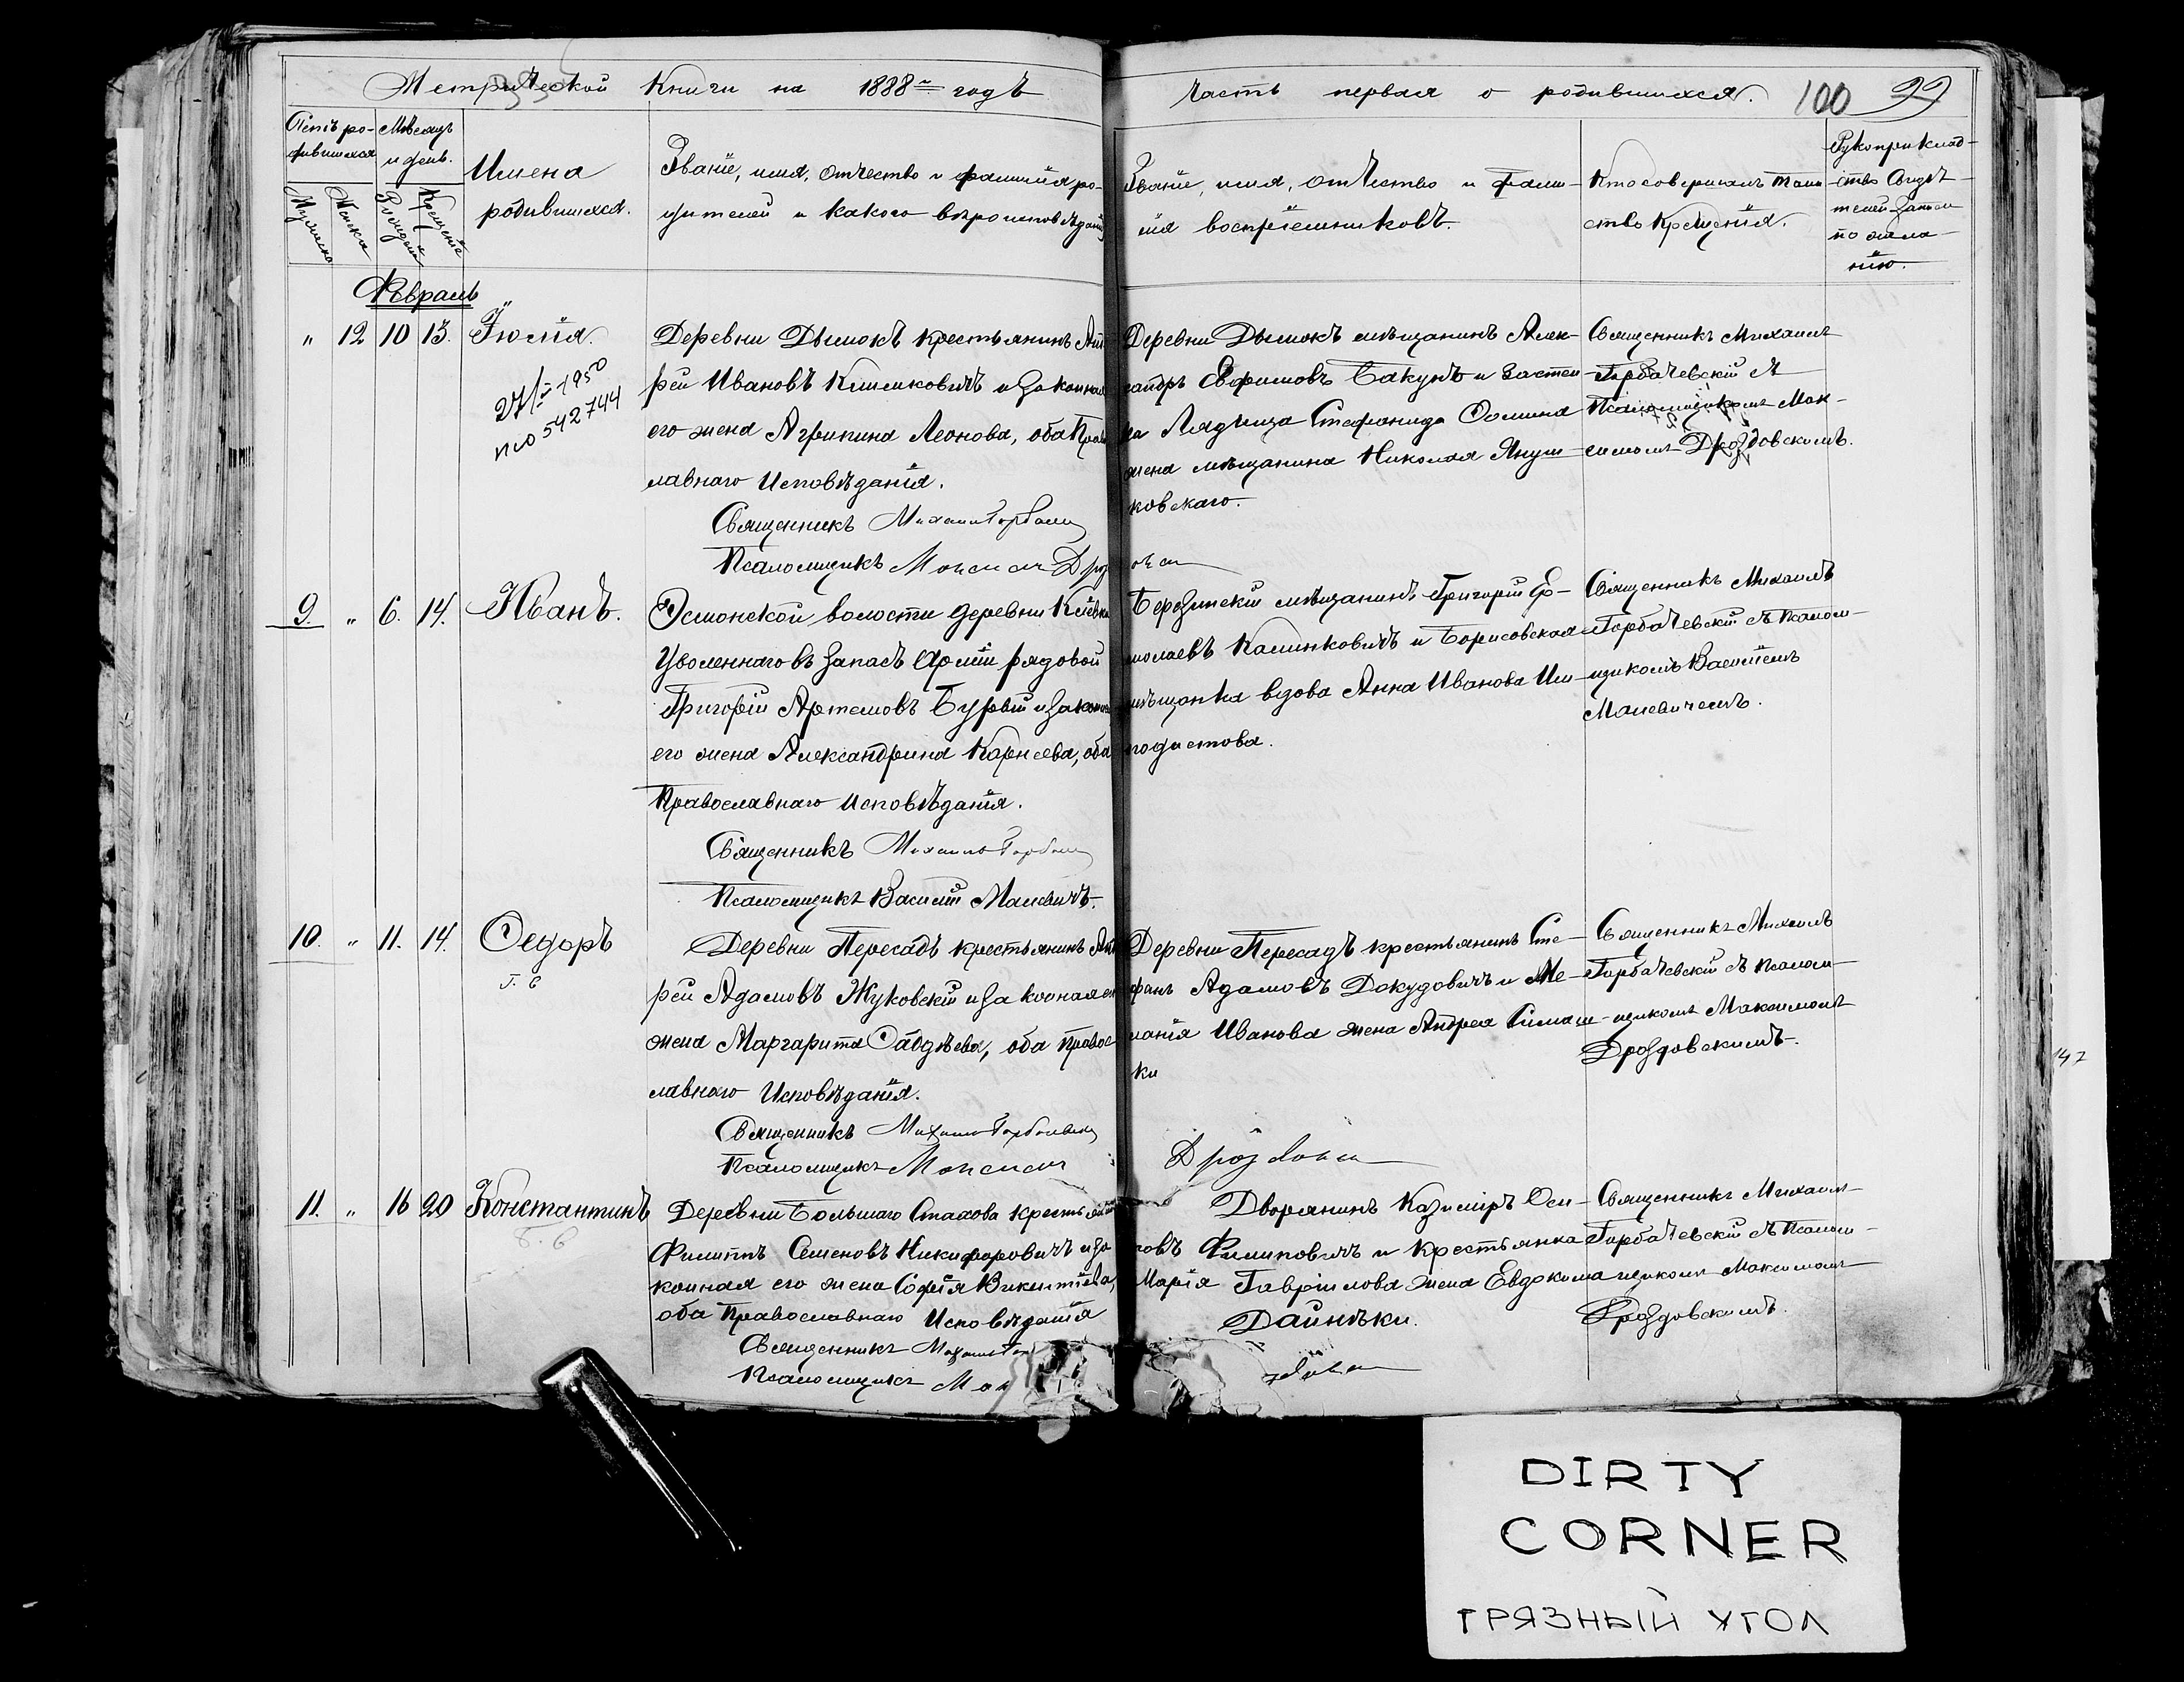 Метрической Книги на 1888 годъ
Часть первая о родившихся. 100 99
Счетъ ро-
дившихся
Мѣсяцъ
и день.
Имена
родившихся.
Званіе, имя, отчество и фамилія ро-
дителей и какого вѣроисповѣданія
Званіе, имя, отчество и фами-
лія воспріемниковъ.
Кто совершалъ таин
ство Крещенія.
Рукоприклад-
ство Свидѣ-
телей записи
по жела-
нію.
Мужеска
Женска
Рожденія
Крещенія
Февраль
" 12 10 13. Іюлія.
1950
542744
Деревни Дымокъ крестьянинъ Анд
рей Ивановъ Климковичъ и законная
его жена Агрипина Леонова, оба Право
лавнаго Исповѣданія.
Священникъ Михаилъ Горбаче
Псаломщикъ Максим Дроз
Деревни Дымокъ мѣщанинъ Алек-
сандръ Евфимовъ Бакунъ и застен-
ка Лядъища Стефанида Сомина
жена мѣщанина Николая Януш-
ковскаго.
Священникъ Михаилъ
Горбачевскій съ
Псаломщикомъ Мак-
симомъ Дроздовскимъ.
9. " 6. 14. Иванъ.
Эсмонской волости деревни Кіевки
Уволеннаго въ запасъ Арміи рядовой
Григорій Артемовъ Бурый и законная
его жена Александрина Карнеева, оба
Православнаго Исповѣданія.
Священникъ Михаилъ Горбаче
Псаломщикъ Василій Малевичъ.
Березинскій мѣщанинъ Григорій Ер-
молаевъ Калинковичъ и Борисовская
мѣщанка вдова Анна Иванова Им-
подистова.
Священникъ Михаилъ
Горбачевскій съ Псалом-
щикомъ Василіемъ
Малевичемъ.
10. " 11. 14. Ѳедоръ
Деревни Пересадъ крестьянинъ Анд
рей Адамовъ Жуковскій и законная ег
жена Маргарита Фаддѣева, оба Правос
лавнаго Исповѣданія.
Священникъ Михаилъ Горбачевск
Псаломщикъ Максим
Дроздовск
Деревни Пересадъ крестьянинъ Сте-
фанъ Адамовъ Докудовичъ и Ме-
ланія Иванова жена Андрея Симаш-
ки
Священникъ Михаилъ
Горбачевскій съ Псалом-
щикомъ Максимомъ
Дроздовскимъ.
11. " 16 20 Константинъ
Деревни Большаго Стахова крестьянинъ
Филиппъ Семеновъ Никифоровичъ и за
конная его жена Софія Викентіева,
оба Православнаго Исповѣданія
Священникъ Михаилъ Гор
Псаломщикъ Мак
Дворянинъ Казиміръ Оси-
повъ Филиповичъ и крестьянка
Марія Гавріилова жена Евдокима
Дайнѣки.
Священникъ Михаилъ
Горбачевскій съ Псалом-
щикомъ Максимомъ
Дроздовскимъ.
147
DIRTY
CORNER
ГРЯЗНЫЙ УГОЛ